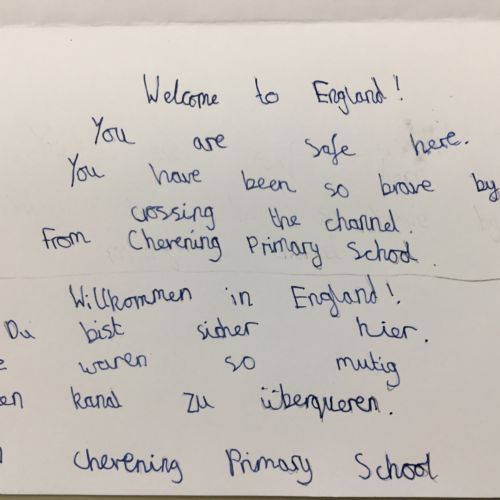 Welcome to England!
You are safe here.
You have been so brave by
crossing the channel.
From Cherening Primary School.
Willkommen in England!
Du bist sicher hier.
waren so mutig
kanal zu überqueren.
Cherening Primary School